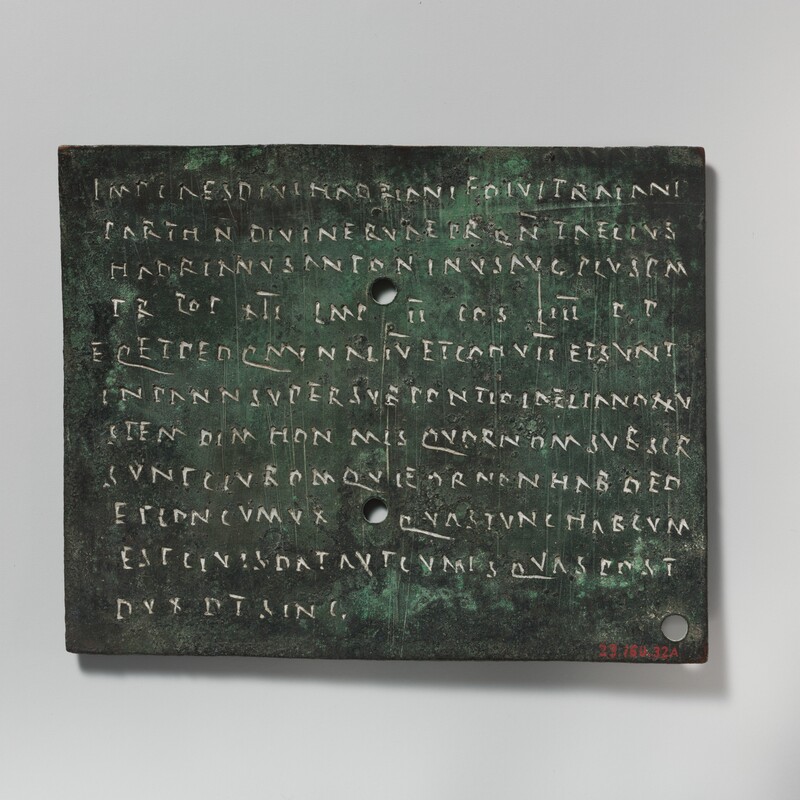 IMP CAES DIVI HADRIANI F DIVI TRAIANI
PARTH N DIVI NERVAE PRON T AELIVS
HADRIANVS ANTONINVS AVG PIVS P M
TR POT XII IMP II COS IIII P P
EQ ET PED AL IV ET COH VII ET SVNT
IN PANN SVPER SVB PONTIO LAELIANO XXV
STEM DIM HON MIS QVOR NOM SVBSCR
SVNT CIV ROM QVI EOR NON HAB DED
ET CON CVM VX QVAS TVNC HAB CVM
EST CIVIS DAT AVT CVM IS QVAS POST
DVX DT SING
23.160.32A